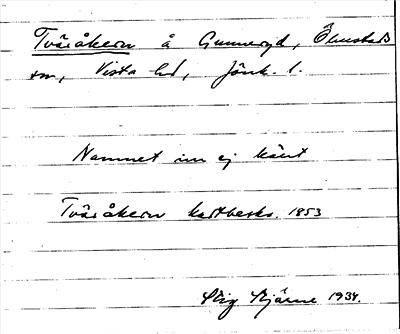 Tväråkern å Gunneryd, Ölmstads
sn, Vista hd, Jönk. l.
Namnet nu ej känt
Tväråkern kartbeskr. 1853
Stig Bjärne 1938.